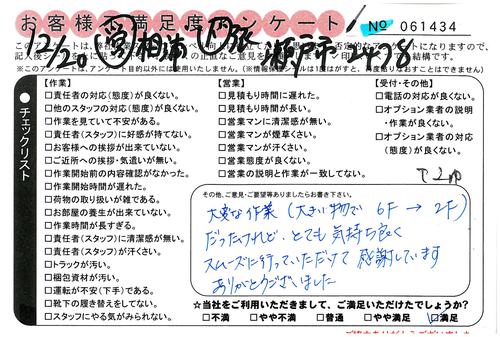 お客様不満足度アンケート
No 061434
12/20
瀬戸市 2478
※このアンケートは、アンケート目的以外には使用いたしません。
チェックリスト
【作業】
□責任者の対応(態度)が良くない。
□他のスタッフの対応(態度)が良くない。
□作業を見ていて不安がある。
□責任者(スタッフ)に好感が持てない。
□お客様への挨拶が出来ていない。
□ご近所への挨拶・気遣いが無い。
□作業開始前の内容確認がなかった。
□作業開始時間が遅れた。
□荷物の取り扱いが雑である。
□お部屋の養生が出来ていない。
□作業時間が長すぎる。
□責任者(スタッフ)に清潔感が無い。
□責任者(スタッフ)が汗くさい。
□トラックが汚い。
□梱包資材が汚い。
□運転が不安(下手)である。
□靴下の履き替えをしてない。
□スタッフにやる気がみられない。
【営業】
□見積もり時間に遅れた。
□見積もり時間が長い。
□営業マンに清潔感が無い。
□営業マンが煙草くさい。
□営業マンが汗くさい。
□営業態度が良くない。
□営業の説明と作業が一致してない。
【受付・その他】
□電話の対応が良くない。
□オプション業者の説明
・作業が良くない。
□オプション業者の対応
(態度)が良くない。
その他、ご意見・ご要望等ありましたらお書き下さい。
大変な作業(大きい物で 6F → 2F)
だったけれど、とても気持ち良く
スムーズに行っていただけて感謝しています
ありがとうございました
☆当社をご利用いただきまして、ご満足いただけたでしょうか?
□不満 □やや不満 □普通 □やや満足 ☑満足